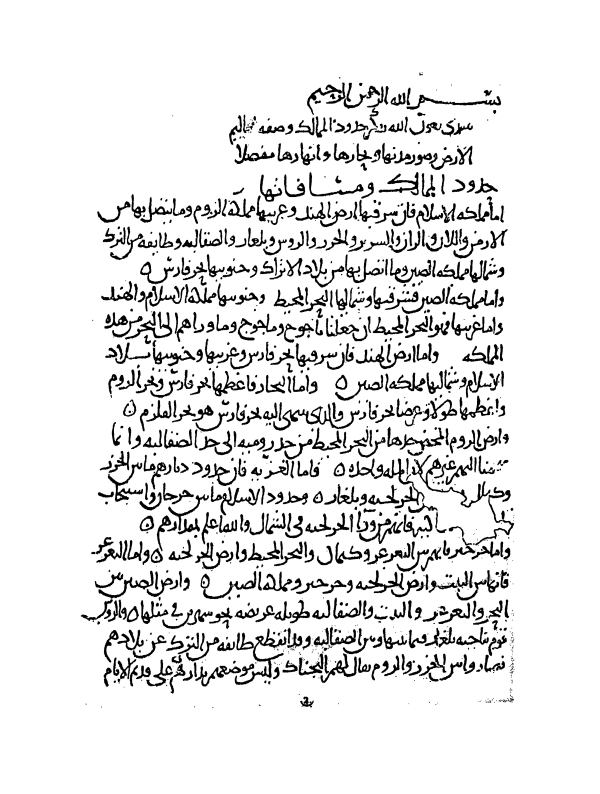 بسم الله الرحمن الرحيم
نبتدى بعون الله بذكر حدود الممالك وصفه اقاليم
الارض وصور مدنها وبحارها وانهارها مفصلا
حدود الممالك ومسافاتها
اما مملكه الاسلام فان شرقيها ارض الهند وغربيها مملكة الروم وما يتصل بها من
الارمن واللان والران والسرير والخزر والروس وبلغار والصقالبه وطائفه من الترك
وشمالها مملكه الصين وما اتصل بها من بلاد الاتراك وجنوبيها بحر فارس
واما مملكه الصين فشرقيها وشمالها البحر المحيط وجنوبيها مملكة الاسلام والهند
واما غربيها فهو البحر المحيط ان جعلنا يأجوج وماجوج وما وراهم الى البحر من هذه
المملكه واما ارض الهند فان شرقيها بحر فارس وغربيها وجنوبيها بلاد
الاسلام وشماليها مملكه الصين واما البحار فاعظمها بحر فارس وبحر الروم
واعظمها طولا وعرضا بحر فارس والذى ينتهى اليه بحر فارس هو بحر القلزم
وارض الروم حدها من البحر المحيط من حد روميه الى حد الصقالبه وانما
ضممنا اليهم غيرهم لان المله واحده فاما الغزيه فان حدود ديارهم ما بين الخزر
وكيماك الخرلخيه وبلغار وحدود الاسلام ما بين جرجان واسبيجاب
فانهم من وراء الخرلخيه فى الشمال والله اعلم بمقدارهم
واما خرخيز فانهم بين التغزغز وكيماك والبحر المحيط وارض الخرلخيه واما التغزغز
فانها بين التبت وارض الخرلخيه وخرخيز ومملكة الصين وارض الصين بين
البحر والتغزغز والتبت والصقالبه طويله عريضه نحو شهرين فى مثلها والروس
قوم ناحيه بلغار فيما بينها وبين الصقالبه وقد انقطع طائفه من الترك عن بلادهم
فصاروا بين الخزر والروم يقال لهم البجناك وليس موضعهم بدارهم على قديم الايام
2